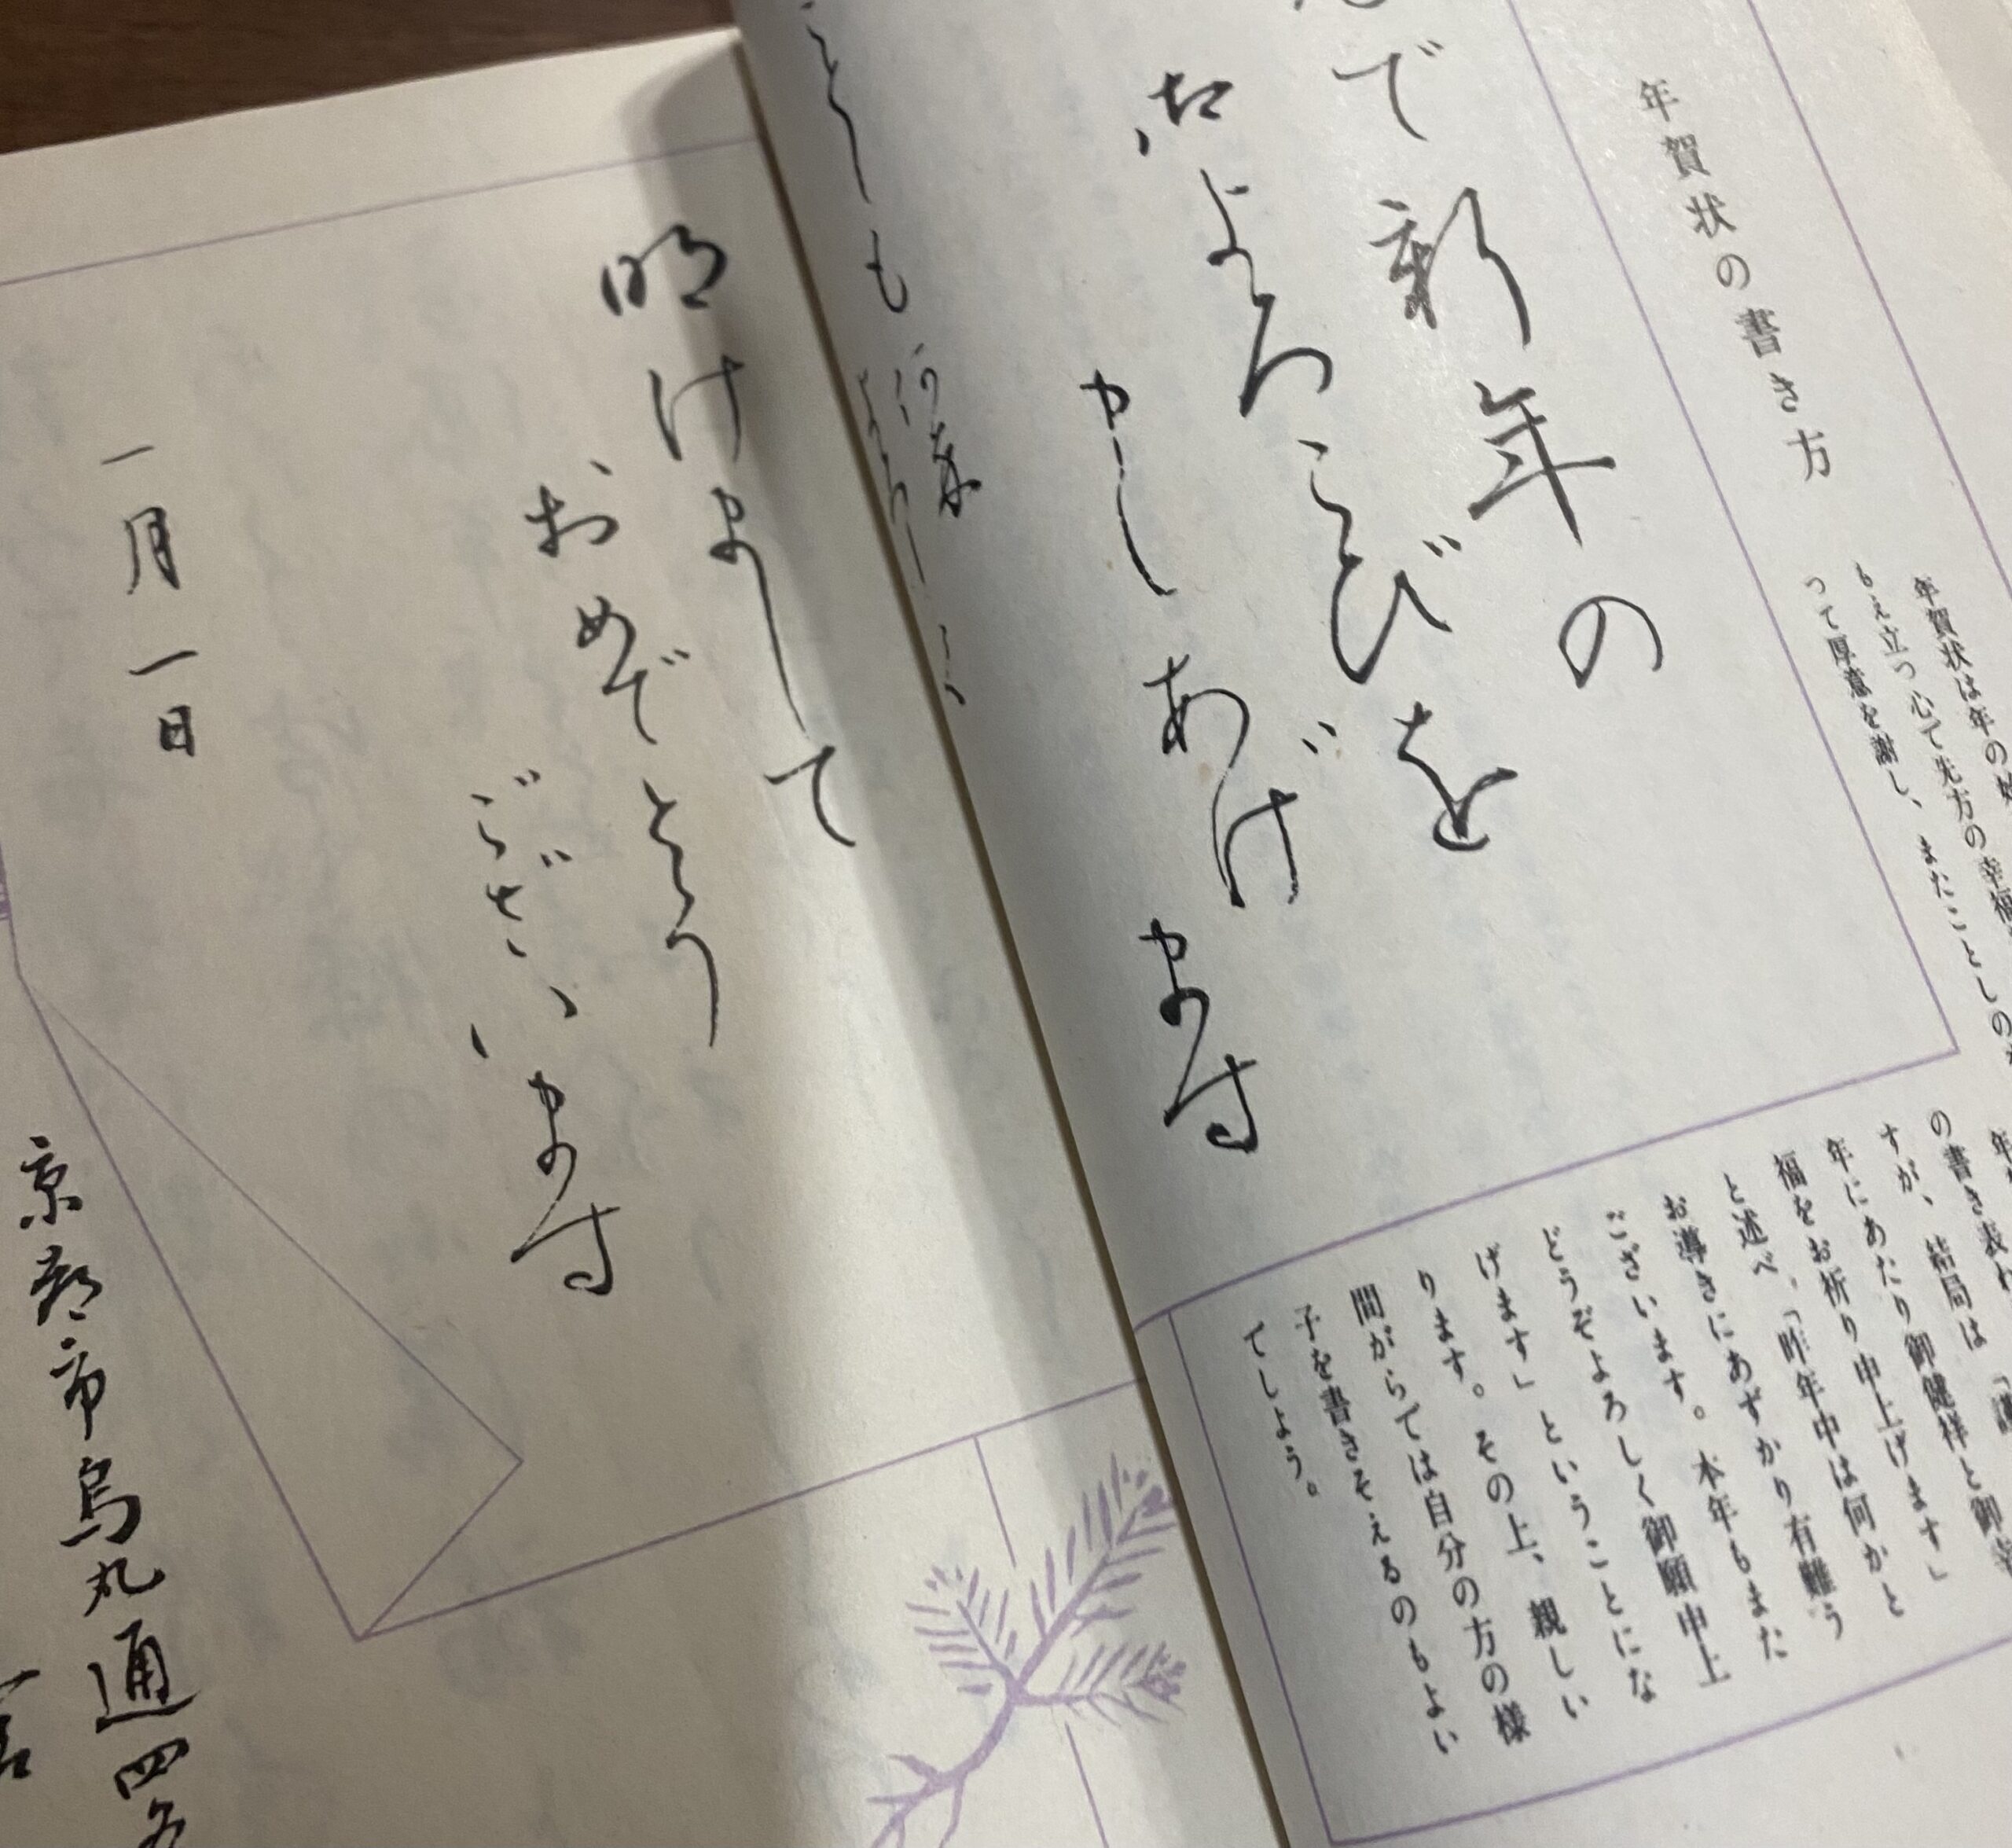 年賀状の書き方
年賀状は年の始
もえ立つ心で先方の幸福
って厚意を謝し、またことしの
で新年の
およろこびを
申しあげます
ことしも
の書き表わ
すが、結局は「謹
年にあたり御健祥と御幸
福をお祈り申上げます」
と述べ、「昨年中は何かと
お導きにあずかり有難う
ございます。本年もまた
どうぞよろしく御願申上
げます」ということにな
ります。その上、親しい
間がらでは自分の方の様
子を書きそえるのもよい
でしょう。
明けまして
おめでとう
ございます
一月一日
京都市烏丸通四